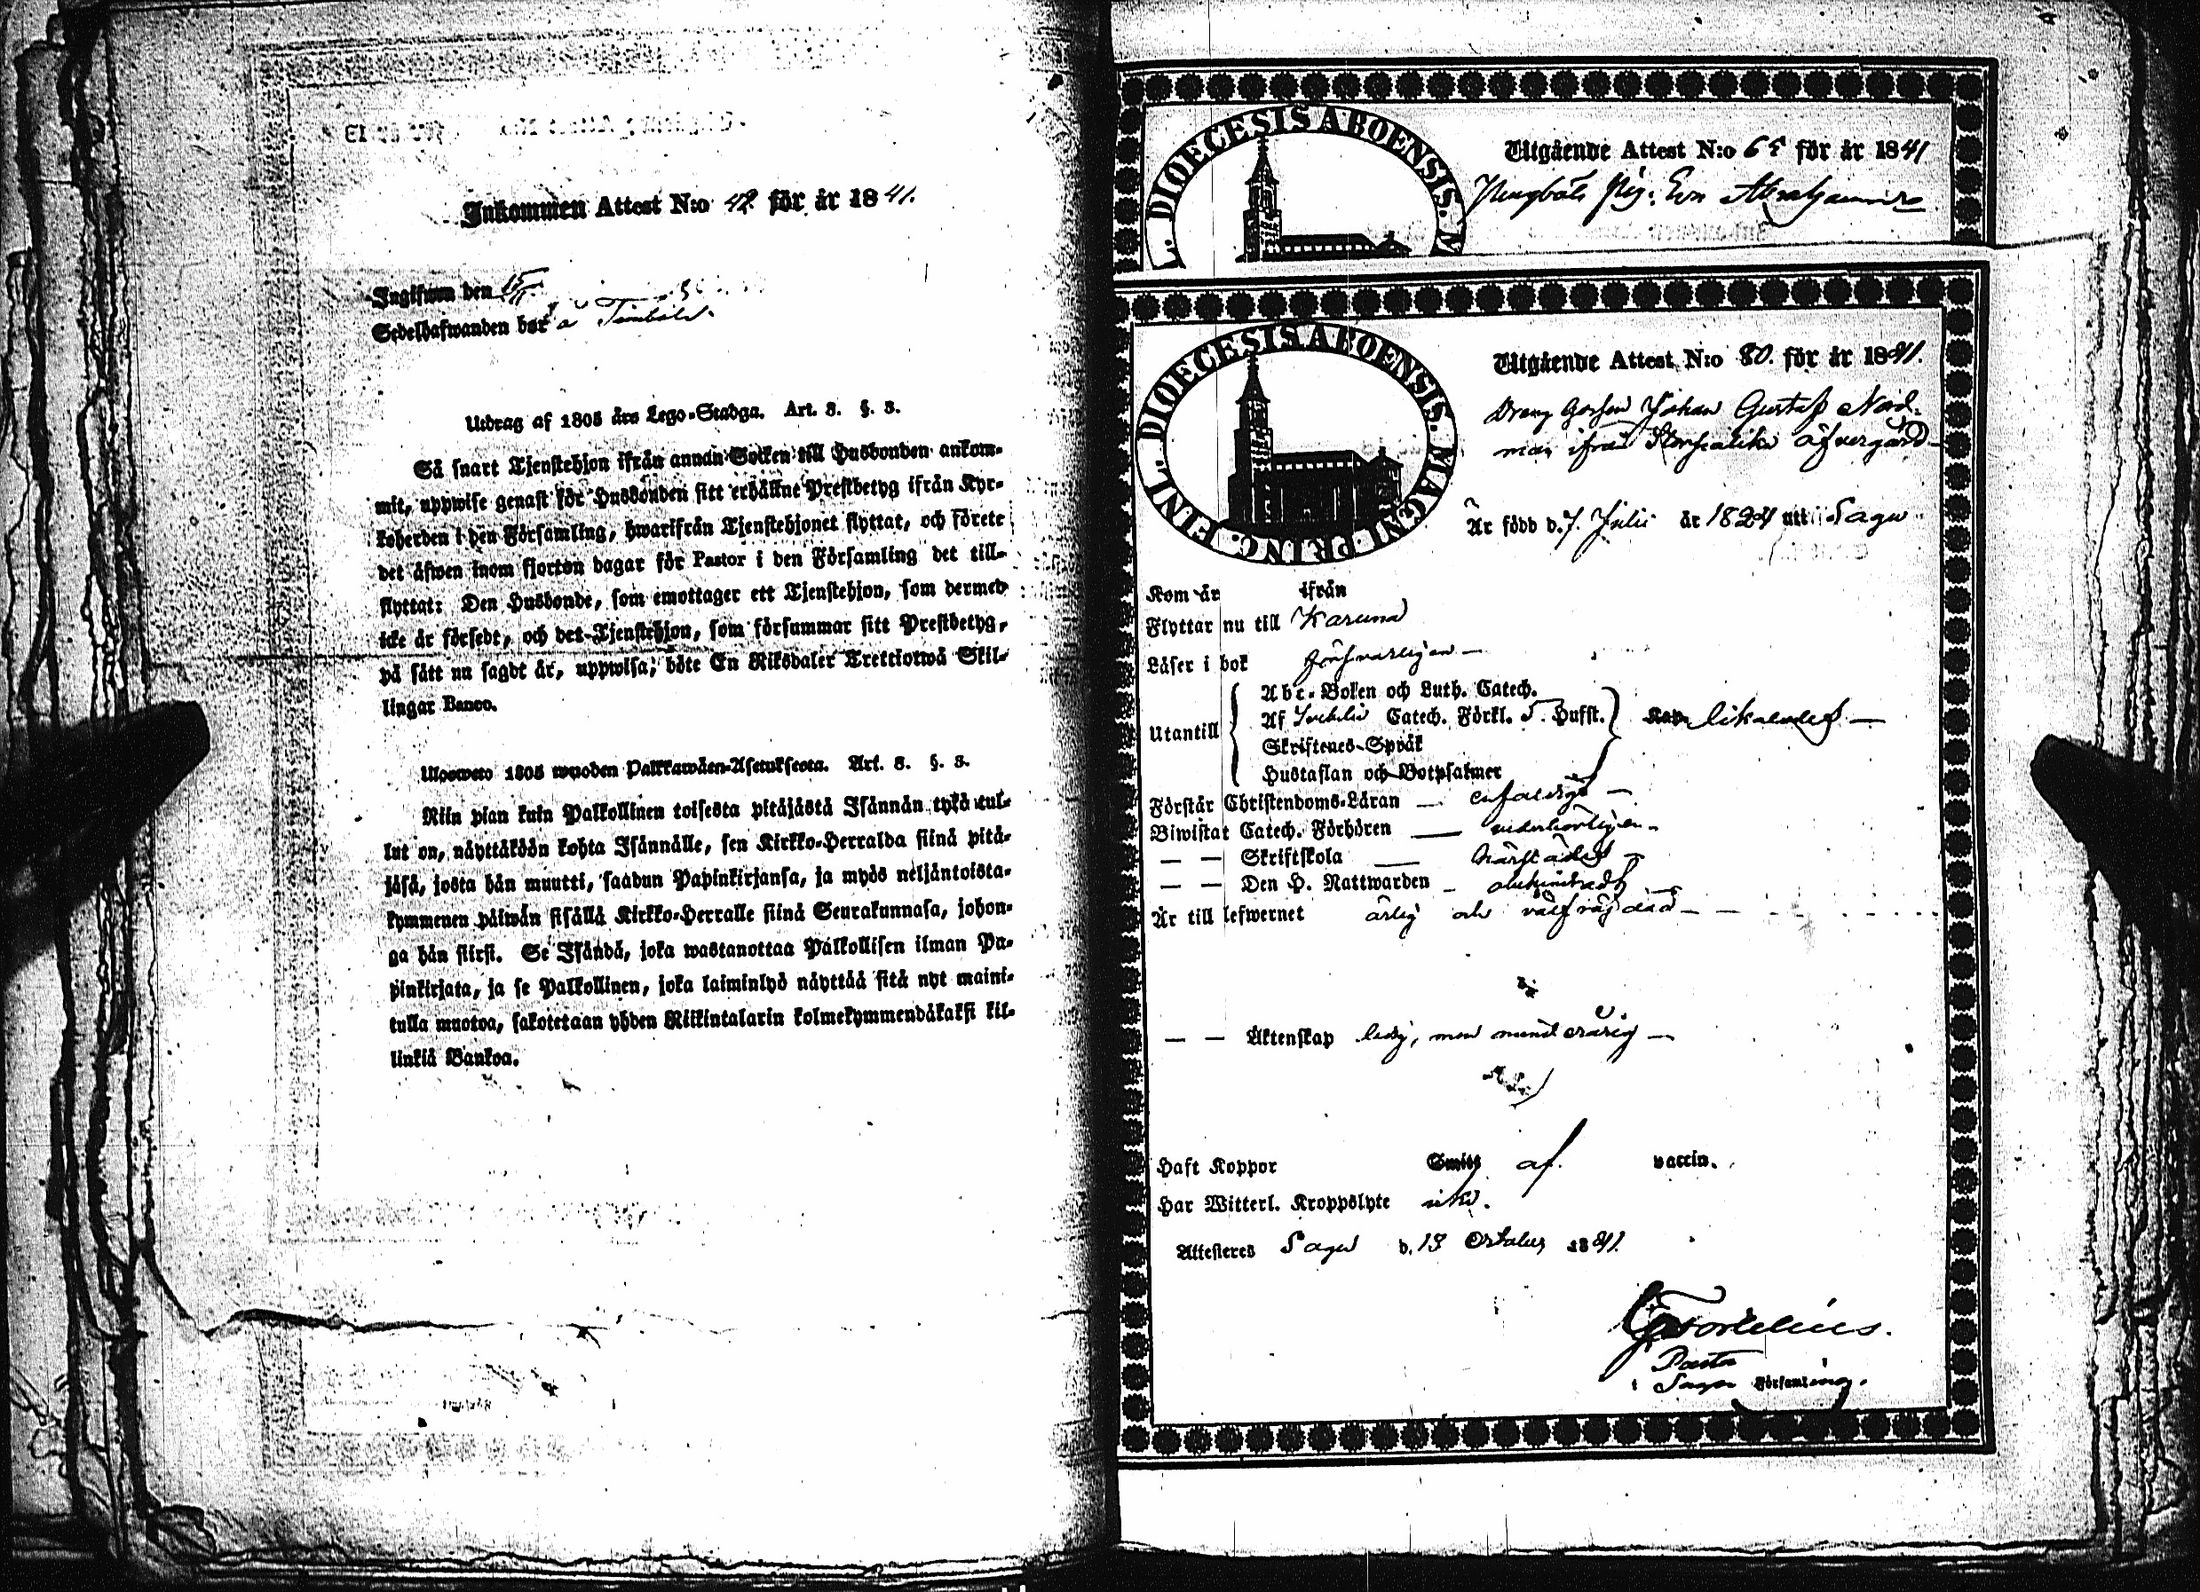 Inkommen Attest N:o 42. för år 1841.
Ingifwen den
Sedelhafwanden bor å
Utdrag af 1805 års Lego-Stadga. Art. 3. §. 3.
Så snart Tjenstehjon ifrån annan Socken till Husbonden ankom-
mit, uppwise genast för Husbonden sitt erhållne Prestbetyg ifrån Kyr-
koherden i den Församling, hwarifrån Tjenstehjonet flyttat, och förete
det äfwen inom fjorton dagar för Pastor i den Församling det till-
flyttat: Den Husbonde, som emottager ett Tjenstehjon, som dermed
icke är försedt, och det Tjenstehjon, som försummar sitt Prestbetyg,
på sätt nu sagdt är, uppwisa, böte En Riksdaler Trettiotwå Skil-
lingar Banco.
Ulosweto 1805 wuoden Palkkawäen-Asetuksesta. Art. 3. §. 3.
Niin pian kuin Palkollinen toisesta pitäjästä Isännän tykö tul-
lut on, näyttäköön kohta Isännälle, sen Kirkko-Herralda siinä pitä-
jäsä, josta hän muutti, saadun Papinkirjansa, ja myös neljäntoista-
kymmenen päiwän sisällä Kirkko-Herralle siinä Seurakunnasa, johon-
ga hän siirsi. Se Isändä, joka wastanottaa Palkollisen ilman Pa-
pinkirjata, ja se Palkollinen, joka laiminlyö näyttää sitä nyt maini-
tulla muotoa, sakotetaan yhden Riikintalarin kolmekymmendäkaksi kil-
linkiä Bankoa.
L. DIOECESIS ABOENSIS. M
Utgående Attest N:o 65 för år 1841
Pig. Eva
FINL. DIOECESIS ABOENSIS. MAGNI PRINC.
Utgående Attest N:o 80. för år 1841.
Dreng Gossen Johan Gustaf Nord-
man ifrån Öfvergård
Är född d. 7. Julii år 1824 uti Sagu
Kom år ifrån
Flyttar nu till Karuna
Läser i bok försvarligen
Utantill
Abc-Boken och Luth. Catech.
Af Svebilii Catech. Förkl. 5. Hufst.
Skriftenes Språk
Hustaflan och Botpsalmer
Kap. likaledes
Förstår Christendoms-Läran enfaldigt
Biwistat Catech. Förhören vederbörligen
— — Skriftskola härstädes
— — Den H. Nattwarden
Är till lefwernet ärlig och välfräjdad
— — Äktenskap ledig, men minderårig
Haft Koppor Smitt af vaccin.
Har Witterl. Kroppslyte icke.
Attesteres Sagu d. 13 October 1841.
Pastor
i Sagu Församling.